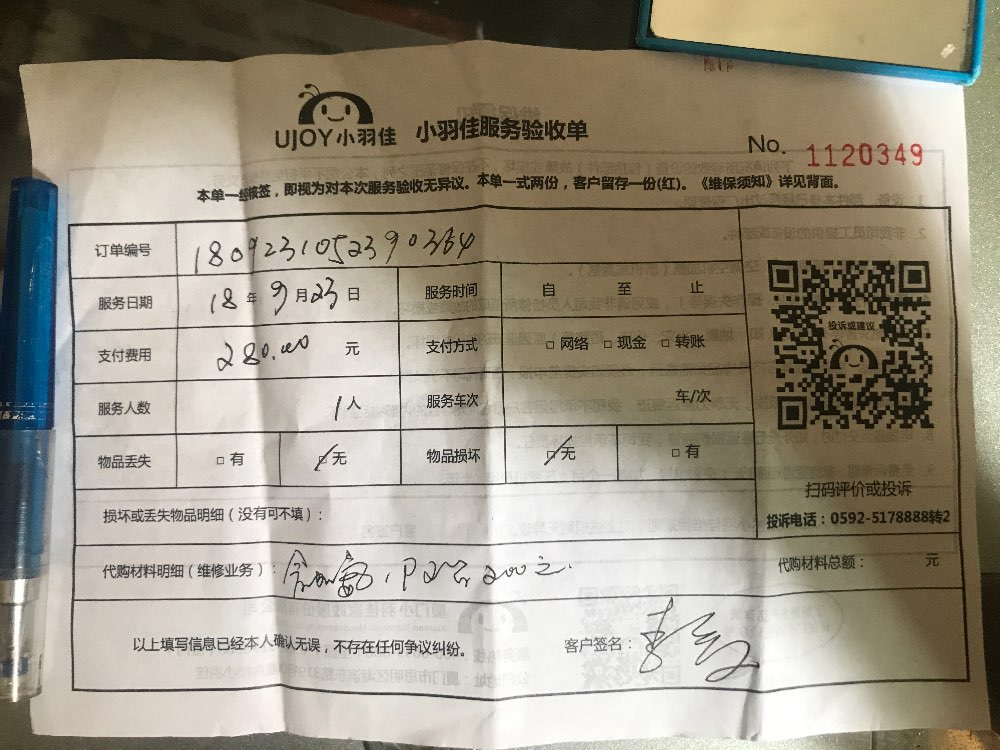 UJOY小羽佳 小羽佳服务验收单
No. 1120349
本单一经核签，即视为对本次服务验收无异议。本单一式两份，客户留存一份(红)。《维保须知》详见背面。
订单编号 1809231052390364
服务日期 18 年 9 月 23 日 服务时间 自 至 止
支付费用 280.00 元 支付方式 □ 网络 □ 现金 □ 转账
服务人数 1 人 服务车次 车/次
物品丢失 □ 有 □ 无 物品损坏 □ 无 □ 有
投诉或建议
扫码评价或投诉
投诉电话：0592-5178888转2
损坏或丢失物品明细（没有可不填）：
代购材料明细（维修业务）： 200元.
代购材料总额： 元
以上填写信息已经本人确认无误，不存在任何争议纠纷。 客户签名：